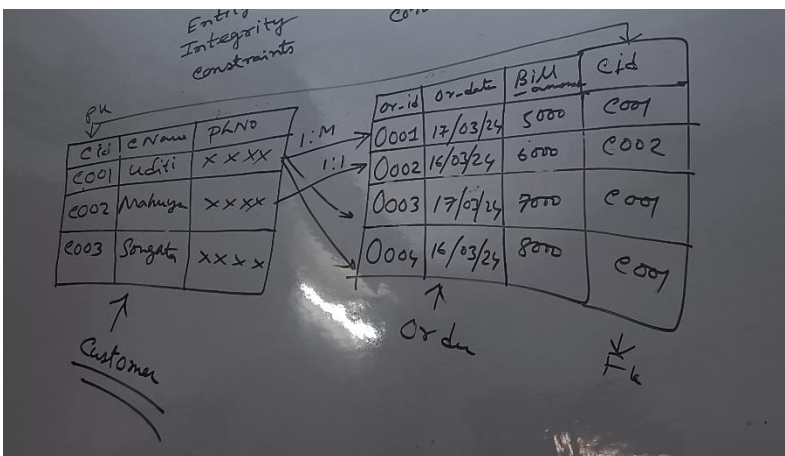 Entity
Integrity
constraints
Con
PK
Cid CName PhNo
C001 Uditi xxxx
C002 Mahuya xxxx
C003 xxxx
Customer
1:M
1:1
Or-id Or-date Bill Cid
0001 17/03/24 5000 C001
0002 16/03/24 6000 C002
0003 17/03/24 7000 C001
0004 16/03/24 8000 C001
Order
Fk